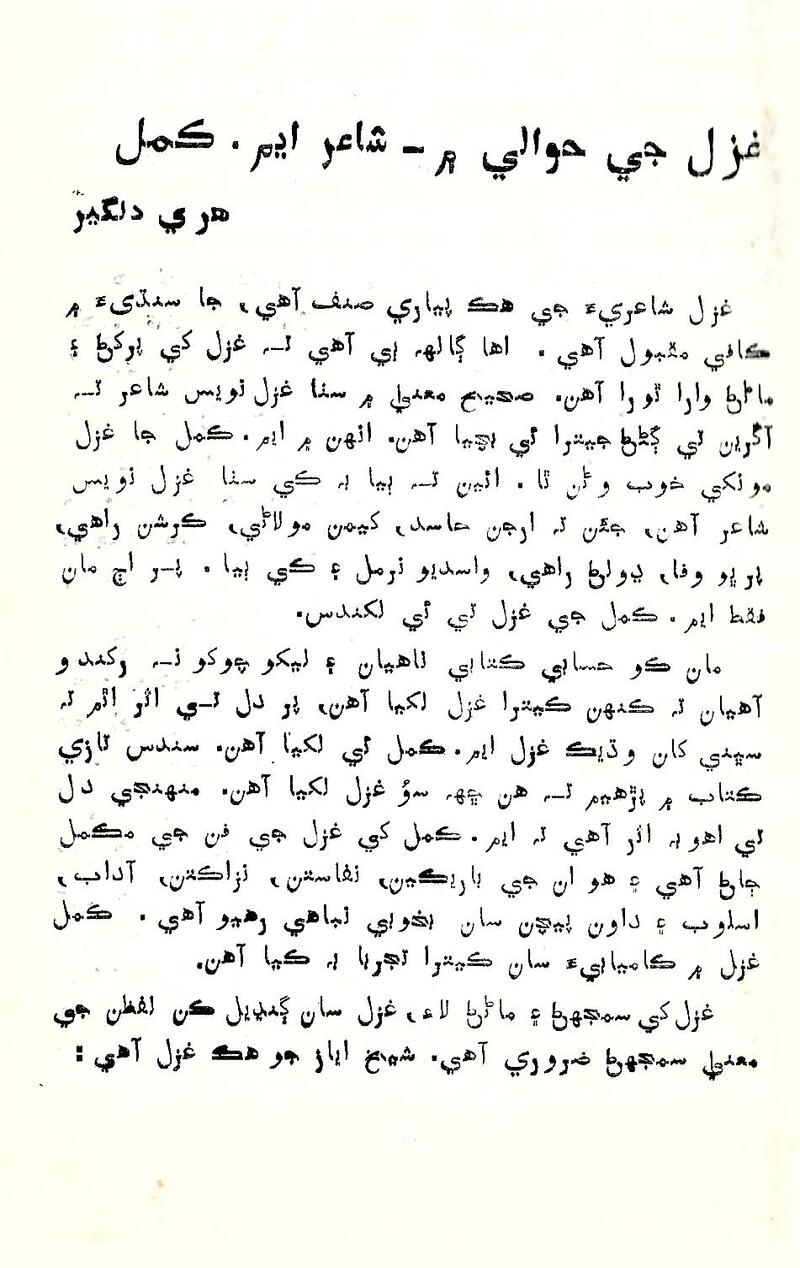 غزل جي حوالي ۾ - شاعر ايم. ڪمل
هري دلگير
غزل شاعريءَ جي هڪ پياري صنف آهي، جا سنڌيءَ ۾
ڪافي مقبول آهي. اها ڳالهہ ٻي آهي تہ غزل کي پرکڻ ۽
ماڻڻ وارا ٿورا آهن. صحيح معنيٰ ۾ سٺا غزل نويس شاعر تہ
آڱرين تي ڳڻڻ جيترا ئي بچيا آهن. انهن ۾ ايم. ڪمل جا غزل
مونکي خوب وڻن ٿا. ائين تہ ٻيا بہ ڪي سٺا غزل نويس
شاعر آهن، جئن تہ ارجن حاسد، کيمن مولاڻي، ڪرشن راهي،
پرڀو وفا، ڍولڻ راهي، واسديو نرمل ۽ ڪي ٻيا. پر اڄ مان
فقط ايم. ڪمل جي غزل تي ئي لکندس.
مان ڪو حسابي ڪتابي ناهيان ۽ ليکو چوکو نہ رکندو
آهيان تہ ڪنهن ڪيترا غزل لکيا آهن، پر دل تي اثر اٿم تہ
سڀني کان وڌيڪ غزل ايم. ڪمل ئي لکيا آهن. سندس تازي
ڪتاب ۾ پڙهيم تہ هن ڇهہ سؤ غزل لکيا آهن. منهنجي دل
تي اهو بہ اثر آهي تہ ايم. ڪمل کي غزل جي فن جي مڪمل
ڄاڻ آهي ۽ هو ان جي باريڪين، نفاستن، نزاڪتن، آداب،
اسلوب ۽ داون پيچن سان بخوبي نباهي رهيو آهي. ڪمل
غزل ۾ ڪاميابيءَ سان ڪيترا تجربا بہ ڪيا آهن.
غزل کي سمجهڻ ۽ ماڻڻ لاءِ، غزل سان ڳنڍيل ڪن لفظن جي
معنيٰ سمجهڻ ضروري آهي. شيخ اياز جو هڪ غزل آهي :